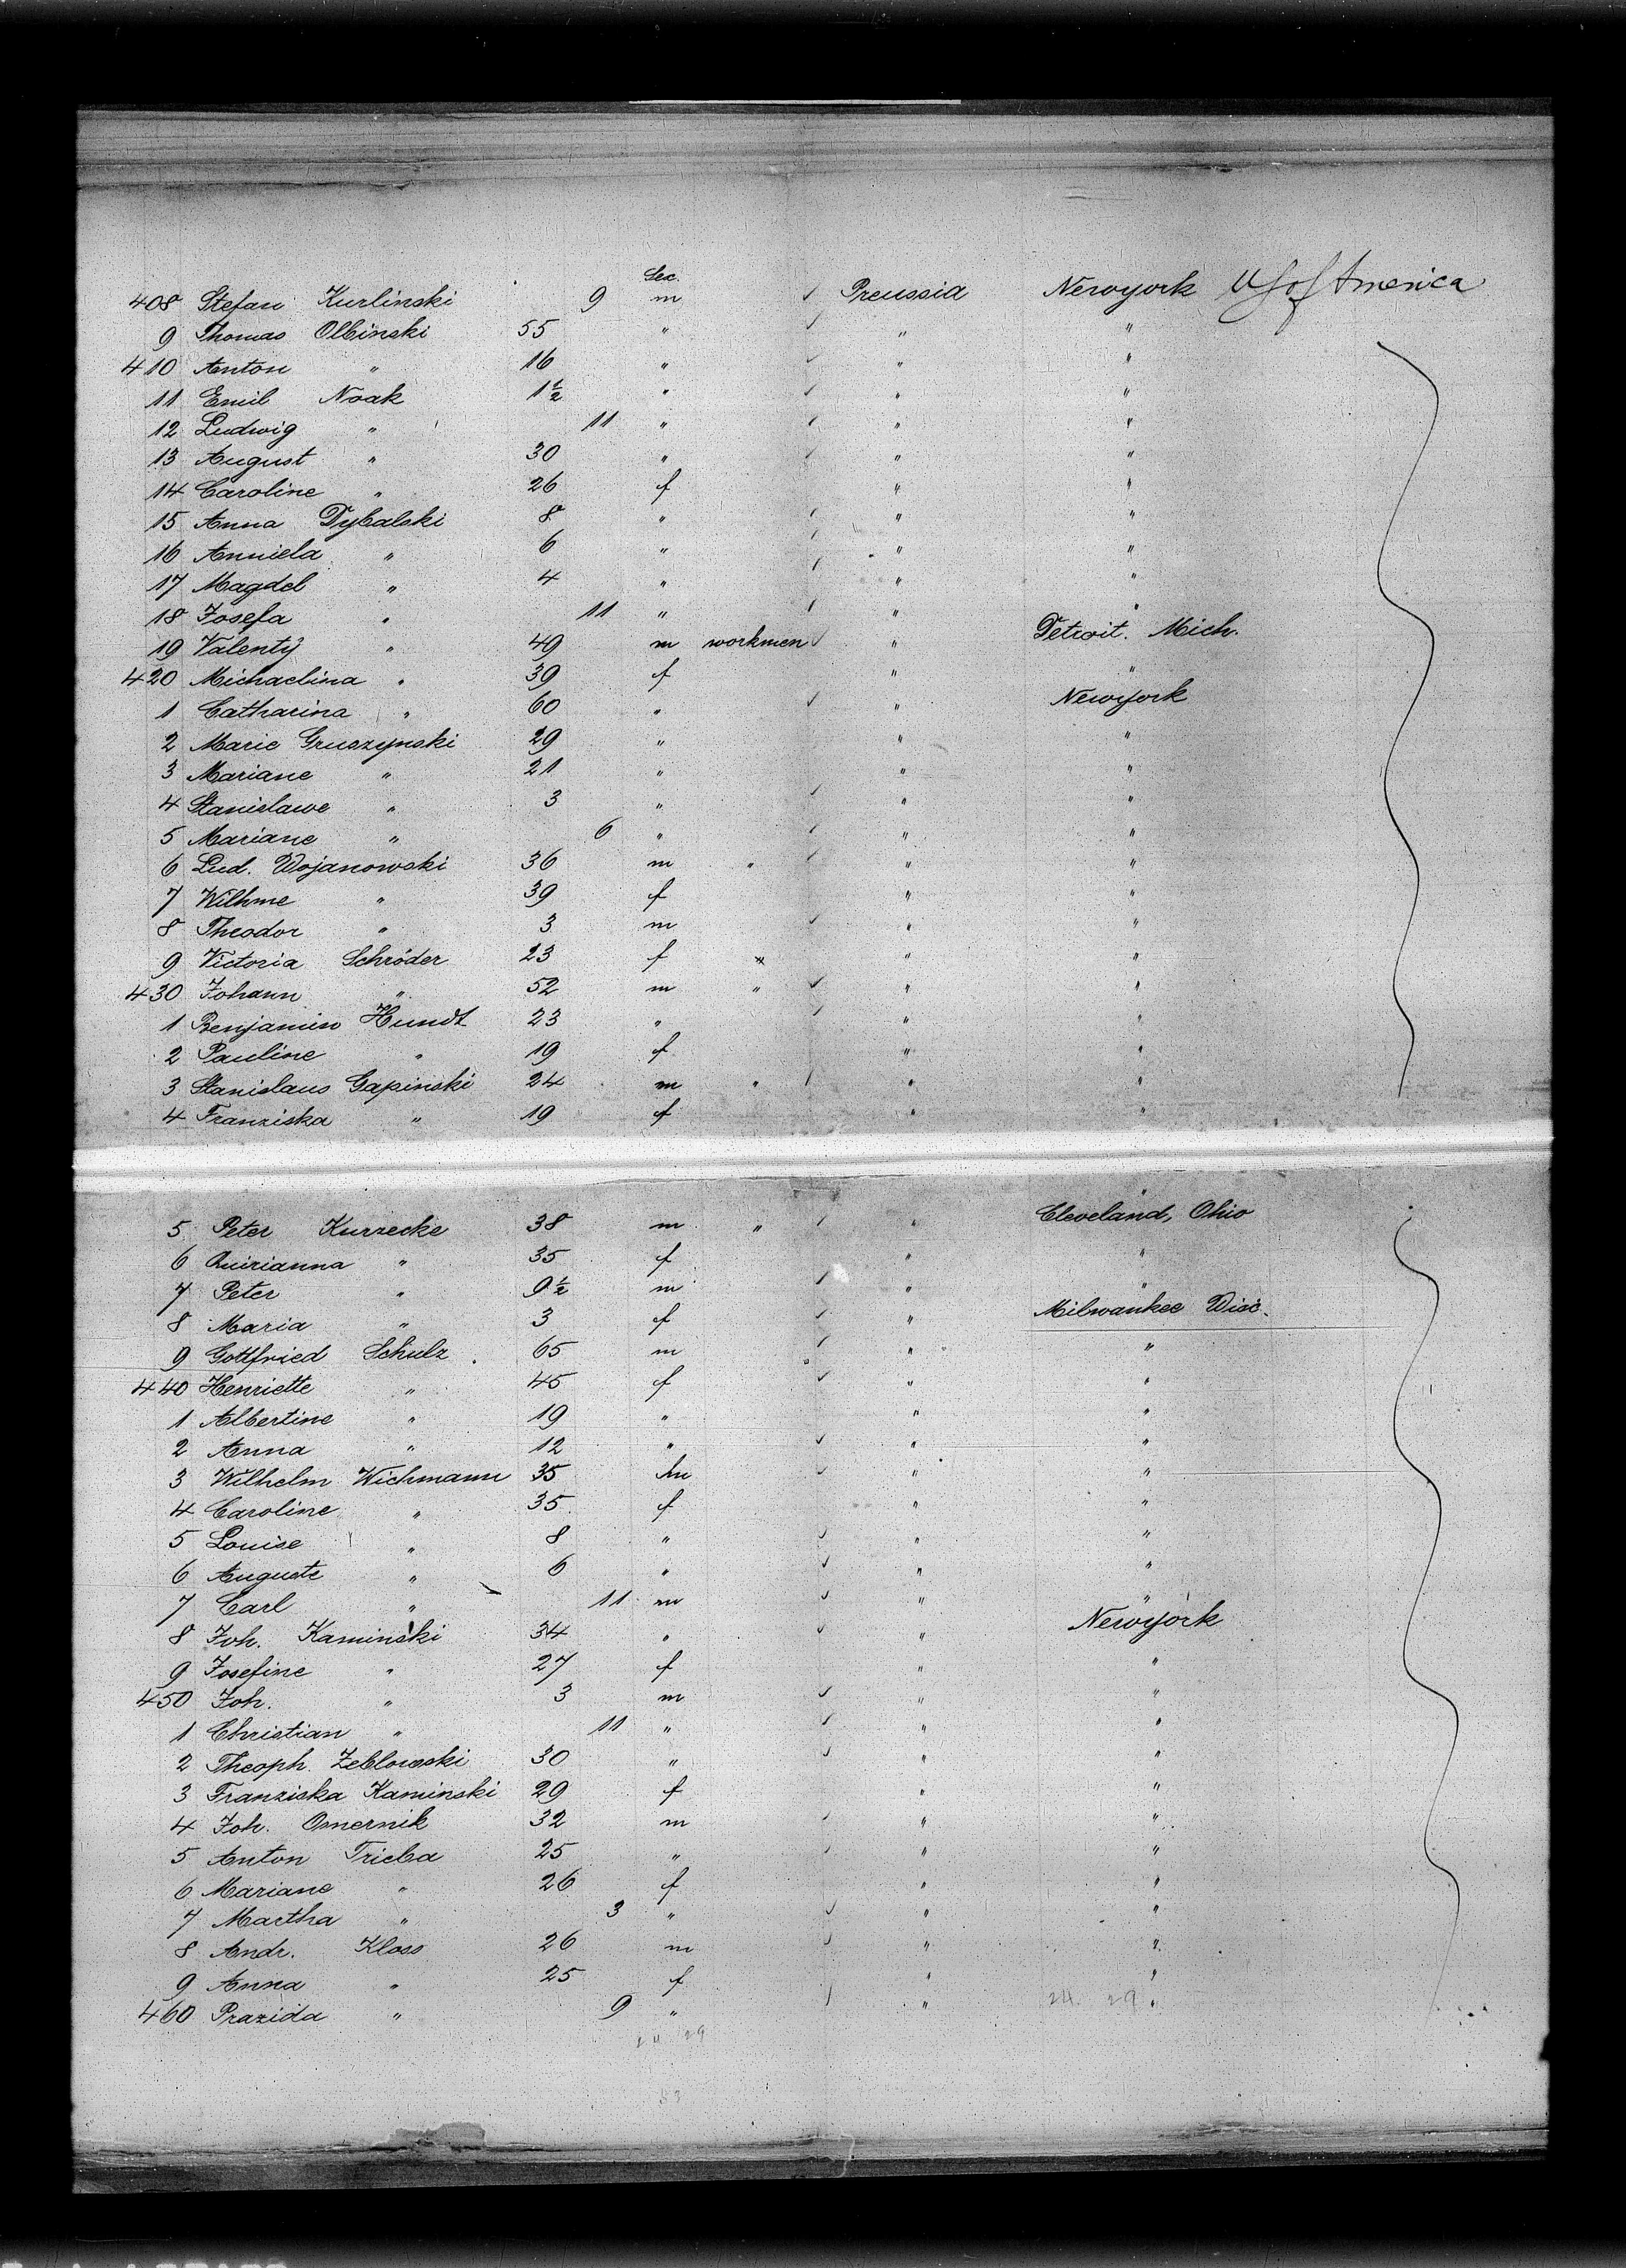 Sex.
408 Stefan Kurlinski 9 m ✓ Preussia Newyork U S of America
9 Thomas Olbinski 55 " ✓ " "
410 Anton " 16 " ✓ " "
11 Emil Noak 1½ " ✓ " "
12 Ludwig " 11 " ✓ " "
13 August " 30 " ✓ " "
14 Caroline " 26 f " "
15 Anna Dybalski 8 " ✓ " "
16 Anniela " 6 " ✓ " "
17 Magdel " 4 " ✓ " "
18 Josefa " 11 " ✓ " "
19 Valenty " 49 m workmen ✓ " Detroit. Mich.
420 Michaelina " 39 f " "
1 Catharina " 60 " ✓ " Newyork
2 Marie Gruszynski 29 " " "
3 Mariane " 21 " " "
4 Stanislawe " 3 " ✓ " "
5 Mariane " 6 " ✓ " "
6 Lud. Wojanowski 36 m " ✓ " "
7 Wilhme " 39 f " "
8 Theodor " 3 m ✓ " "
9 Victoria Schröder 23 f " " "
430 Johann " 52 m " ✓ " "
1 Benjamin Hundt 23 " ✓ " "
2 Pauline " 19 f " "
3 Stanislaus Gapinski 24 m " ✓ " "
4 Franziska " 19 f " "
5 Peter Kurzecke 38 m " ✓ " Cleveland, Ohio
6 Quirianna " 35 f " "
7 Peter " 9½ m ✓ " "
8 Maria " 3 f ✓ " Milwaukee Wisc.
9 Gottfried Schulz 65 m ✓ " "
440 Henriette " 45 f ✓ " "
1 Albertine " 19 " " "
2 Anna " 12 " ✓ " "
3 Wilhelm Wichmann 35 m ✓ " "
4 Caroline " 35 f " "
5 Louise " 8 " ✓ " "
6 Auguste " 6 " ✓ " "
7 Carl " 11 m ✓ " "
8 Joh. Kaminski 34 " ✓ " Newyork
9 Josefine " 27 f " "
450 Joh. " 3 m ✓ " "
1 Christian " 11 " ✓ " "
2 Theoph. Zeblowski 30 " ✓ " "
3 Franziska Kaminski 29 f " "
4 Joh. Omernik 32 m ✓ " "
5 Anton Trieba 25 " ✓ " "
6 Mariane " 26 f " "
7 Martha " 3 " ✓ " "
8 Andr. Kloss 26 m ✓ " "
9 Anna " 25 f " "
460 Prazida " 9 " ✓ " "